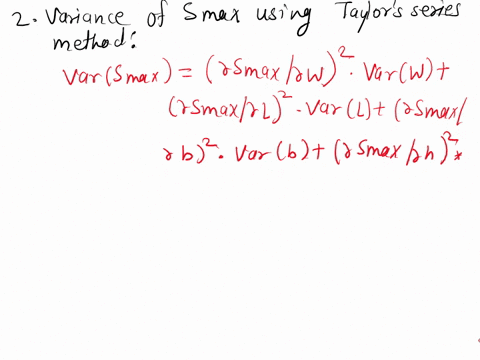 2. Variance of Smax using Taylor's series
method:
Var(Smax) = (∂Smax/∂W)². Var(W) +
(∂Smax/∂L)². Var(L) + (∂Smax/
∂b)². Var(b) + (∂Smax/∂h)² *